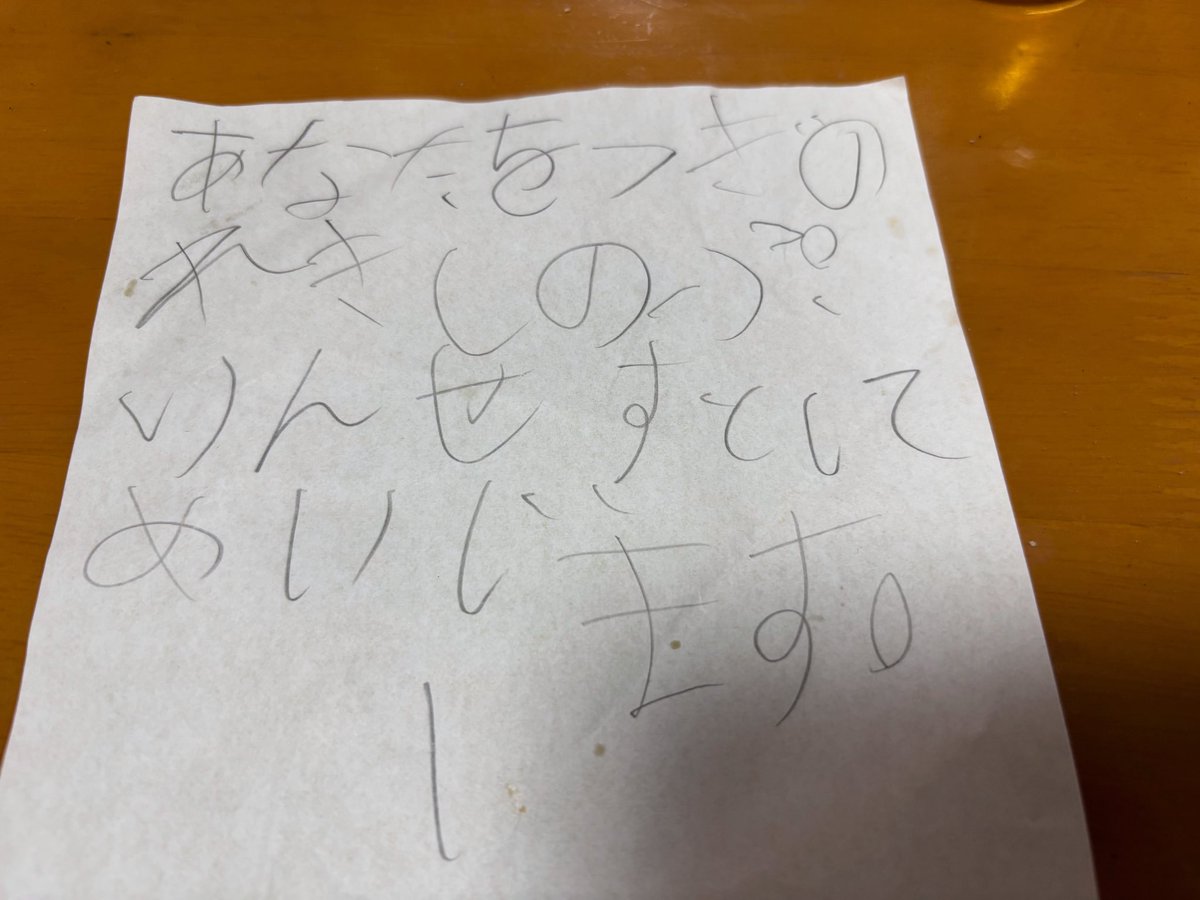 あなたをつぎの
れきしのぷ
りんせすとして
めいじます。